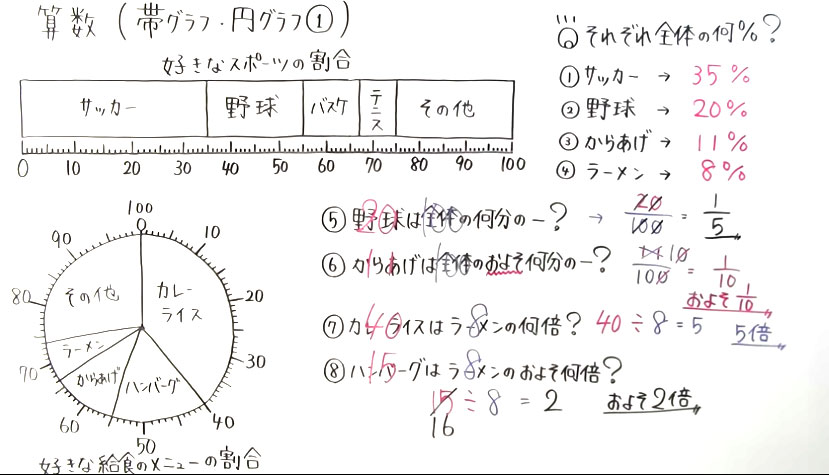 算数 (帯グラフ・円グラフ①)
好きなスポーツの割合
サッカー 野球 バスケ テニス その他
0 10 20 30 40 50 60 70 80 90 100
それぞれ全体の何%?
①サッカー → 35%
②野球 → 20%
③からあげ → 11%
④ラーメン → 8%
100
0
90 10
80 20
70 30
60 40
50
その他 カレーライス
ラーメン
からあげ ハンバーグ
好きな給食のメニューの割合
⑤野球は全体の何分の一? → 20/100 = 1/5
20 100
⑥からあげは全体のおよそ何分の一? 11 10/100 = 1/10
11 100
およそ1/10
⑦カレーライスはラーメンの何倍? 40÷8=5 5倍
40 8
⑧ハンバーグはラーメンのおよそ何倍?
15 8
15÷8 = 2 およそ2倍
16